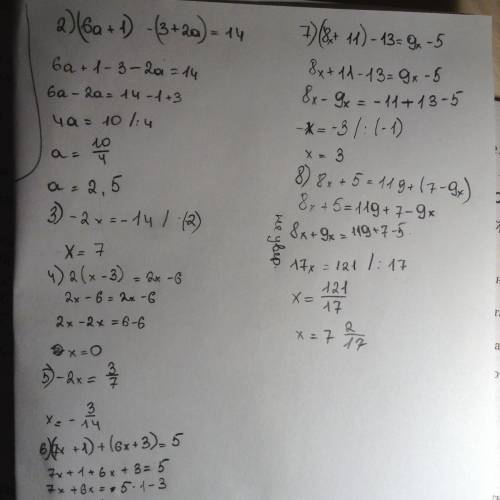 2) (6a+1) -(3+2a)=14
6a+1-3-2a=14
6a-2a=14-1+3
4a=10 /:4
a=10/4
a=2,5
3) -2x=-14 /:(2)
x=7
4) 2(x-3)=2x-6
2x-6=2x-6
2x-2x=6-6
x=0
5) -2x=3/7
x=-3/14
6) (7x+1)+(6x+3)=5
7x+1+6x+3=5
7x+6x=5-1-3
7) (8x+11)-13=9x-5
8x+11-13=9x-5
8x-9x=-11+13-5
-x=-3 /:(-1)
x=3
8) 8x+5=119+(7-9x)
8x+5=119+7-9x
8x+9x=119+7-5
17x=121 /:17
x=121/17
x=7 2/17
не увер.